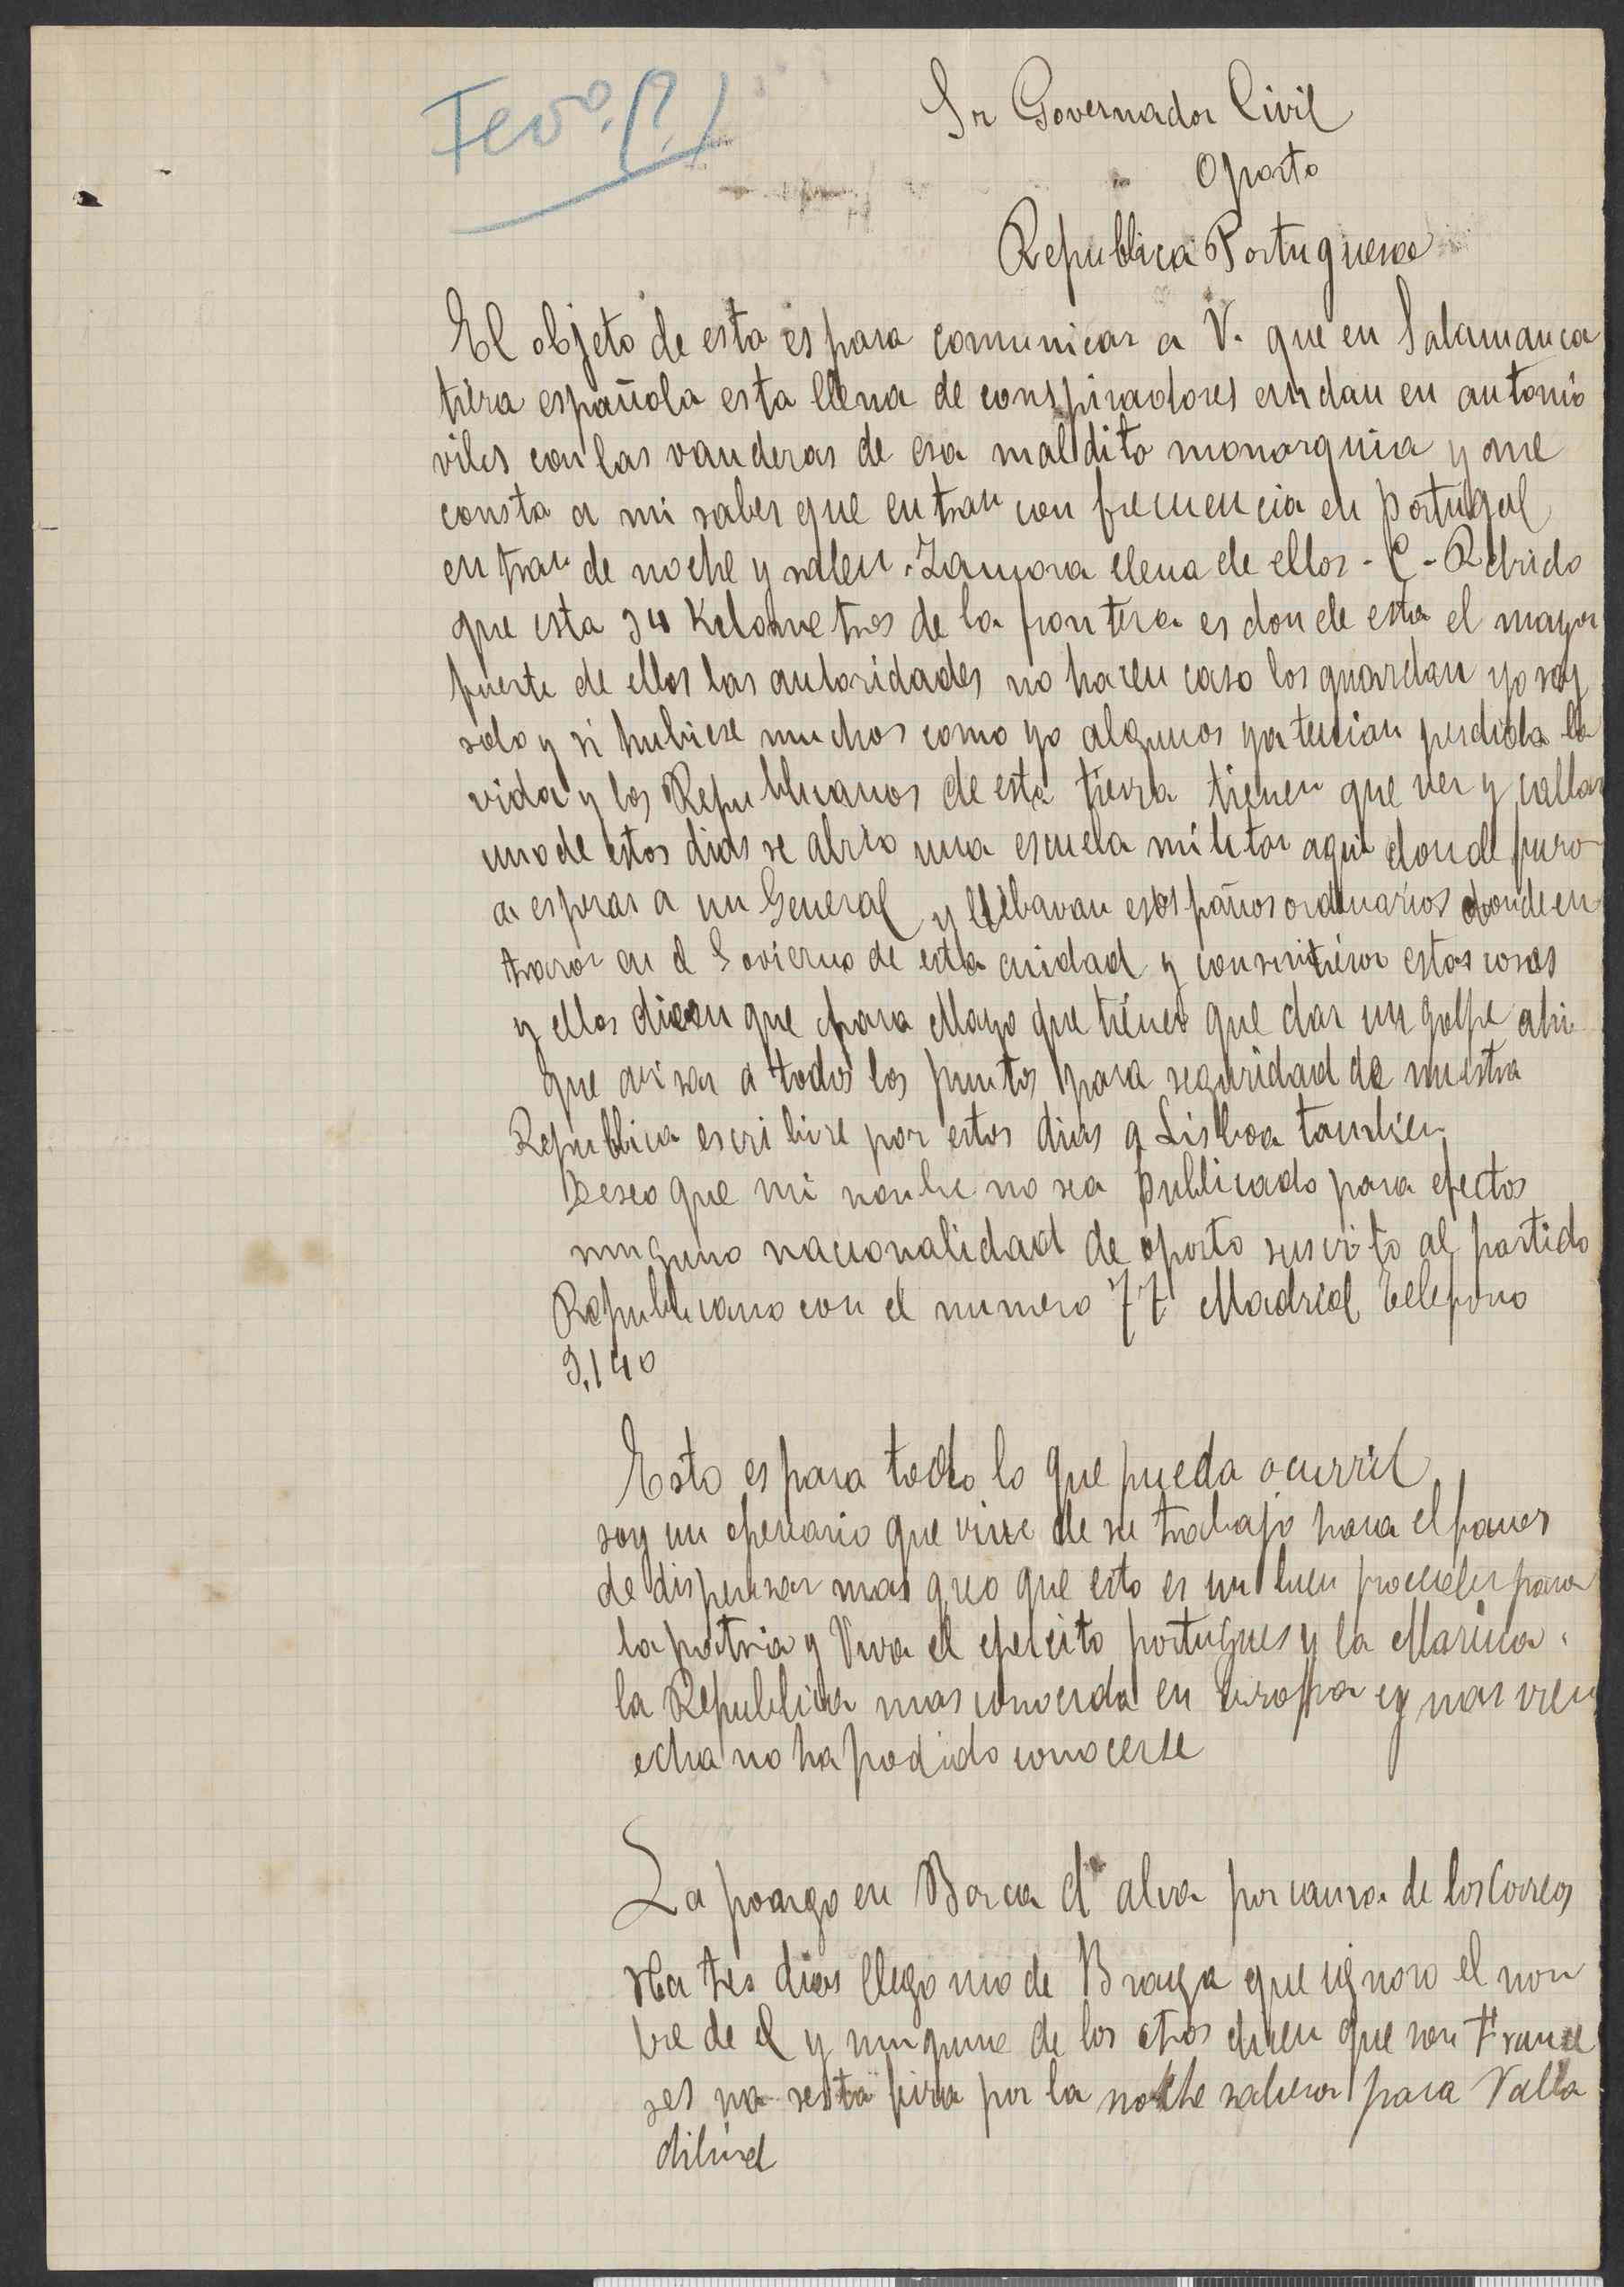 Fevº. (?)
Sr Governador Civil
Oporto
Republica Portuguesa
El objeto de esta es para comunicar a V. que en Salamanca
tiera española esta llena de conspiradores andan en automo
viles con las vanderas de esa maldito monarquia y me
consta a mi saber que entran con frecuencia en Portugal
entran de noche y salen. Zamora llena de ellos - C - Rdrido
que esta 34 Kilometros de la frontera es donde esta el mayor
fuerte de ellos las autoridades no hacen caso los guardan yo soy
solo y si hubiese muchos como yo algunos ya tenian perdida la
vida y los Republicanos de esta tierra tienen que ver y callar
uno de estos dias se abrio una escuela militar aqui donde
a esperar a un General y llebavan esos paños ordinarios donde en
traror en el Govierno de esta ciudad y consintieron estas cosas
y ellos dicen que para Mayo que tienen que dar un golpe ahi
que avisar a todos los puntos para seguridad de nuestra
Republica escribire por estos dias a Lisboa tambien
Deseo que mi nonbre no sea publicado para efectos
ninguno nacionalidad de oporto suscrito al partido
Republicano con el numero 77 Madrid Telefono
3,140
Esto es para todo lo que pueda ocurril
soy un operario que vive de su trabajo hara el favor
de dispensar mas greo que esto es un buen proceder para
la patria y Viva el ejercito portugues y la Marina.
la Republica mas conocida en Europa y mas vien
echa no ha podido conocerse
La pongo en Barca d'alva por causa de los Correos
Ha tres dias llego uno de Braga que ignoro el non
bre de el y ninguno de los otros dicen que son France
ses por la noche salieron para Valla
dilid